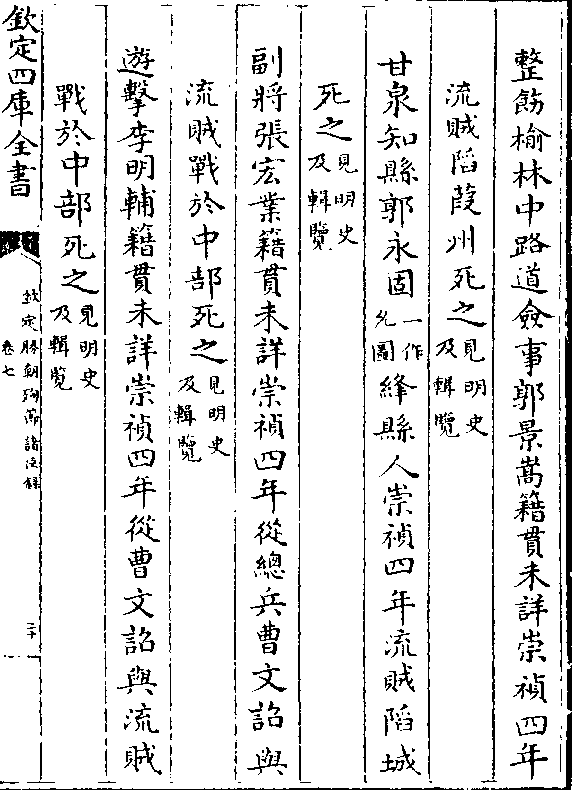 整飭榆林中路道僉事郭景嵩籍貫未詳崇禎四年
流賊陷葭州死之見明史及輯覽
甘泉知縣郭永固一作允圖絳縣人崇禎四年流賊陷城
死之見明史及輯覽
副將張宏業籍貫未詳崇禎四年從總兵曹文詔與
流賊戰於中部死之見明史及輯覽
遊擊李明輔籍貫未詳崇禎四年從曹文詔與流賊
戰於中部死之見明史及輯覽
欽定四庫全書
欽定勝朝殉節諸臣錄
卷七
二十